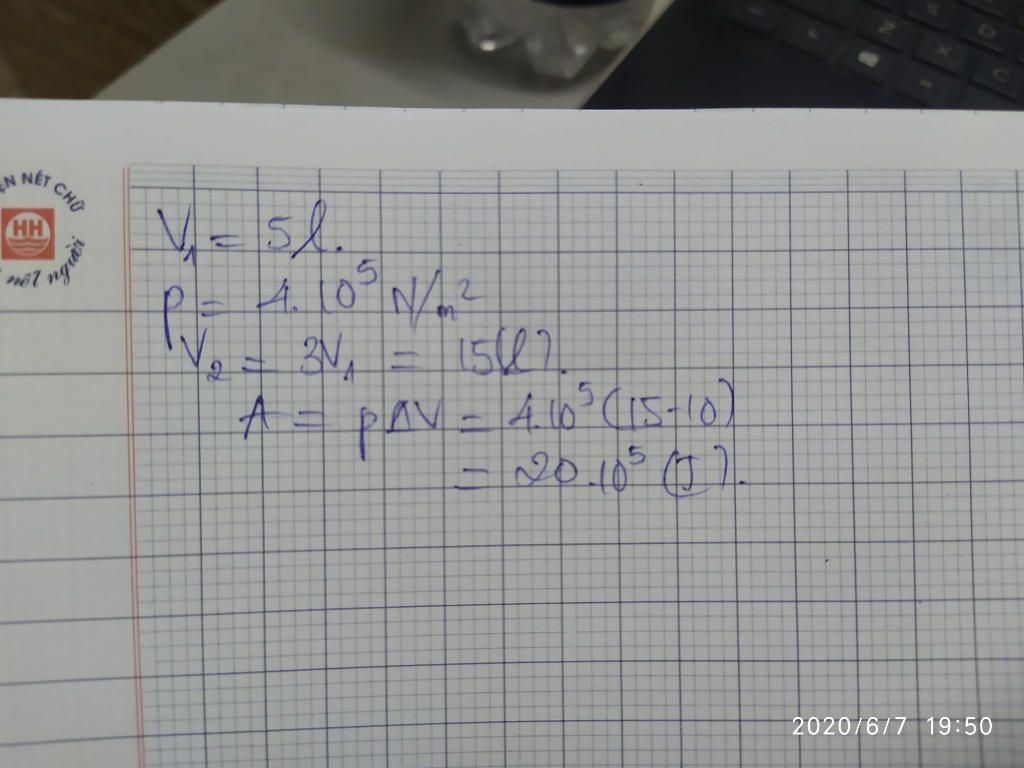 ỆN NÉT CHỮ
HH
nết người
V₁ = 5l.
p = 4.10⁵ N/m²
V₂ = 3V₁ = 15(l).
A = pΔV = 4.10⁵(15-10)
= 20.10⁵ (J).
2020/6/7 19:50